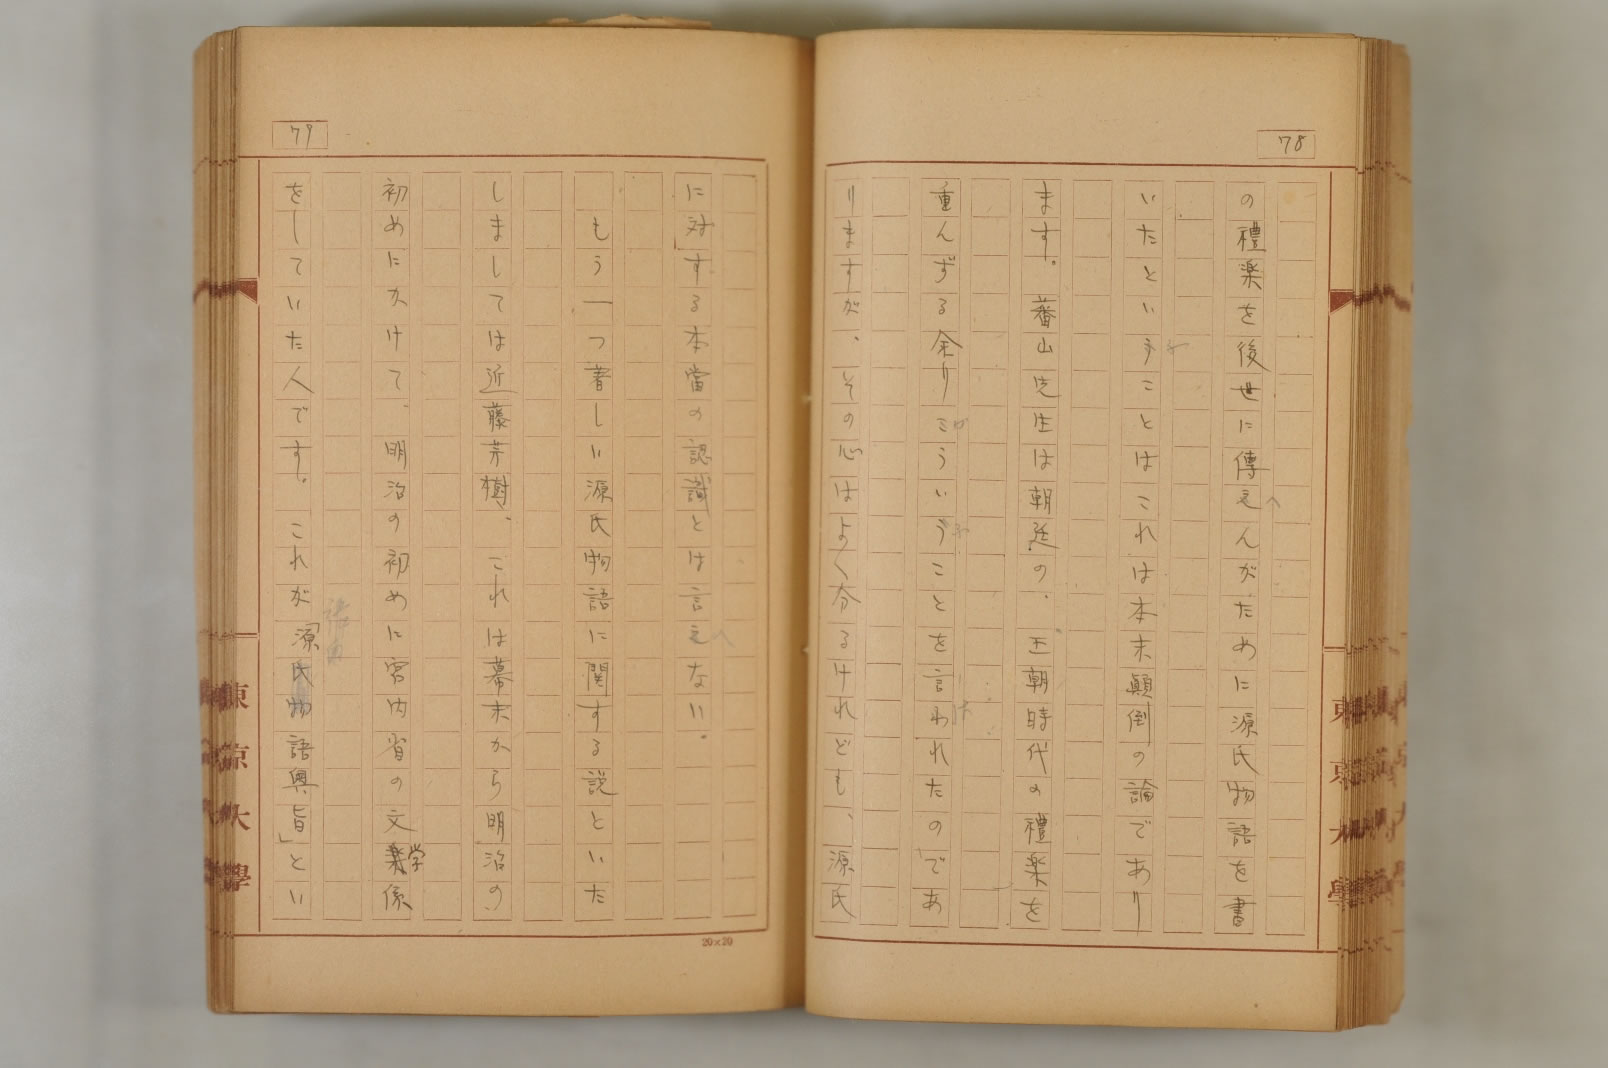 78
の禮楽を後世に傳えんがために源氏物語を書
へ
いたということはこれは本末顛倒の論であり
ます。蕃山先生は朝廷の、王朝時代の禮楽を
重んずる余りこういうことを言われたのであ
りますが、その心はよく分るけれども、源氏
79
に対する本當の認識とは言えない。
へ
もう一つ著しい源氏物語に関する説といた
しましては近藤芳樹、これは幕末から明治の
初めにかけて、明治の初めに宮内省の文学係
をしていた人です。これが「源氏物語奥旨」とい
20×20
東京大學